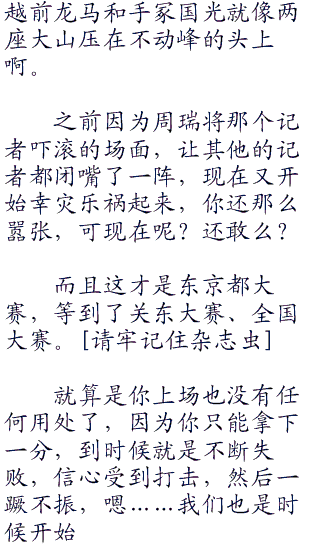 越前龙马和手冢国光就像两
座大山压在不动峰的头上
啊。
之前因为周瑞将那个记
者吓滚的场面，让其他的记
者都闭嘴了一阵，现在又开
始幸灾乐祸起来，你还那么
嚣张，可现在呢？还敢么？
而且这才是东京都大
赛，等到了关东大赛、全国
大赛。[请牢记住杂志虫]
就算是你上场也没有任
何用处了，因为你只能拿下
一分，到时候就是不断失
败，信心受到打击，然后一
蹶不振，嗯……我们也是时
候开始